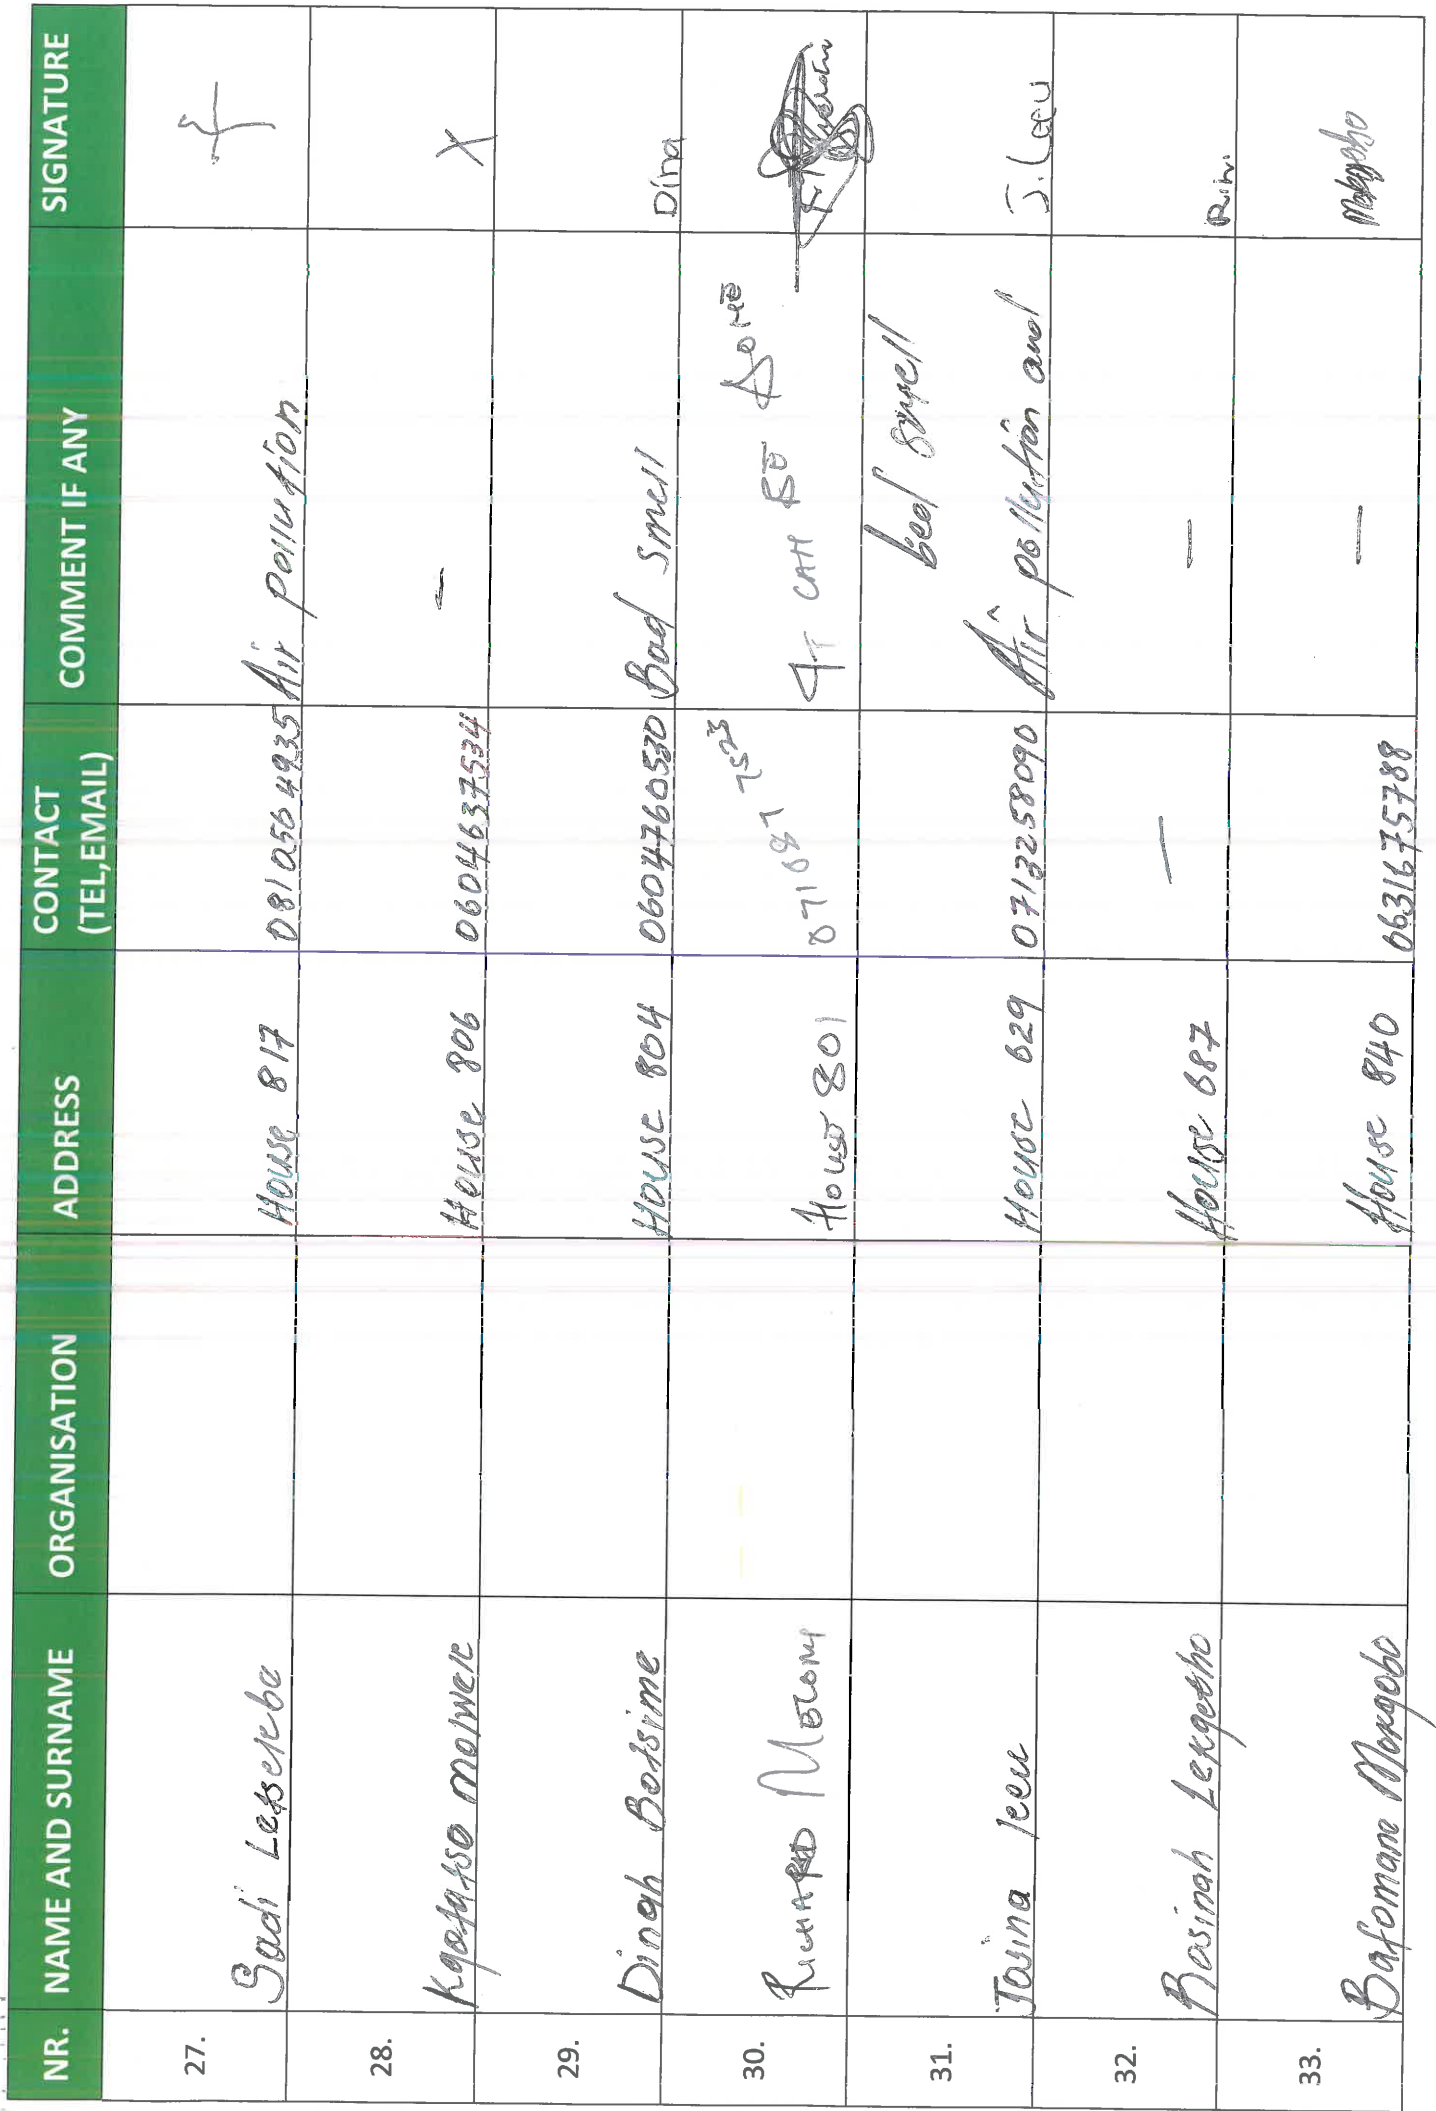 NR. NAME AND SURNAME ORGANISATION ADDRESS CONTACT (TEL,EMAIL) COMMENT IF ANY SIGNATURE
27. Sadi Letsereba House 817 0810564935 Air pollution
28. Kgotatso Molwele House 806 0604637534 – X
29. Dinah Botsime House 804 0604760530 Bad smell Dina
30. RICHARD House 801 071087 7523 IT CAN BE DONE
31. Josina leeu House 629 0713258090 Air pollution and bad smell J. Leeu
32. Rosinah Lekgetho House 687 — —
33. Bafomane Mokgobo House 840 0631675788 —